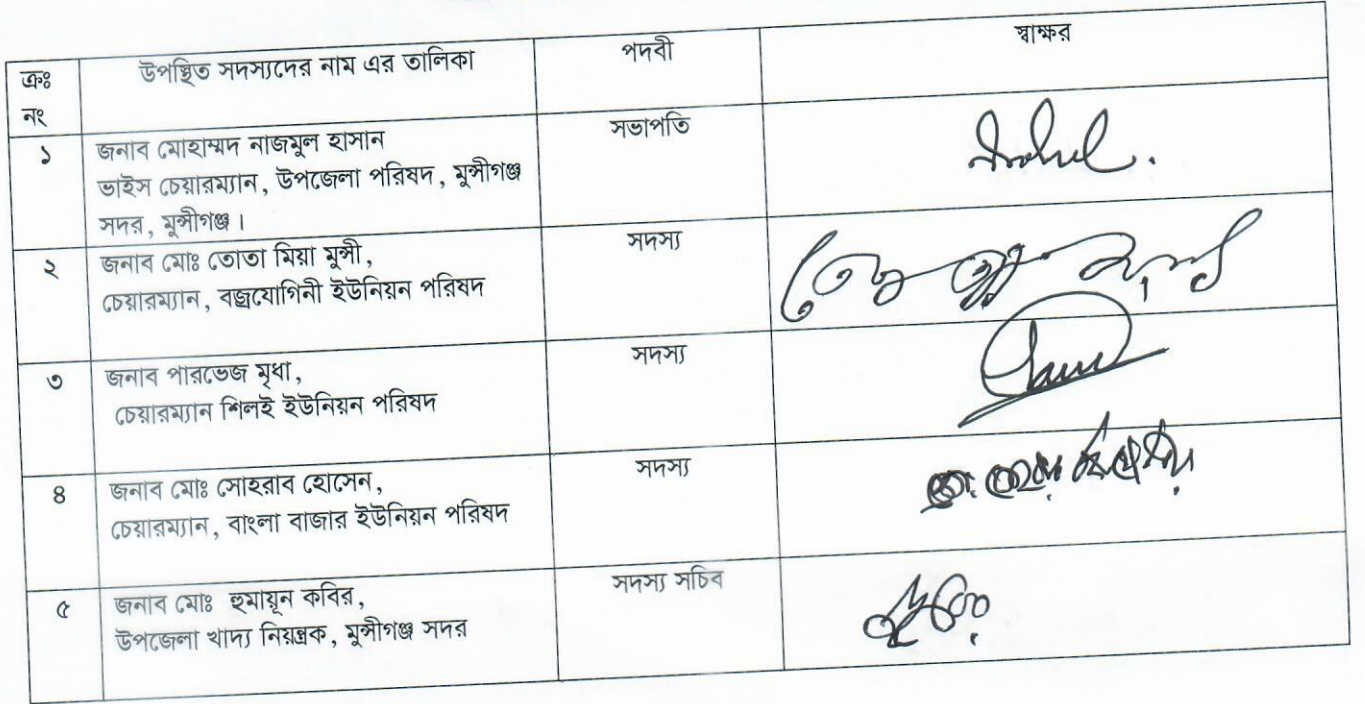 ক্রঃ নং
উপস্থিত সদস্যদের নাম এর তালিকা
পদবী
স্বাক্ষর
১
জনাব মোহাম্মদ নাজমুল হাসান
ভাইস চেয়ারম্যান, উপজেলা পরিষদ, মুন্সীগঞ্জ
সদর, মুন্সীগঞ্জ।
সভাপতি
২
জনাব মোঃ তোতা মিয়া মুন্সী,
চেয়ারম্যান, বজ্রযোগিনী ইউনিয়ন পরিষদ
সদস্য
৩
জনাব পারভেজ মৃধা,
চেয়ারম্যান শিলই ইউনিয়ন পরিষদ
সদস্য
৪
জনাব মোঃ সোহরাব হোসেন,
চেয়ারম্যান, বাংলা বাজার ইউনিয়ন পরিষদ
সদস্য
৫
জনাব মোঃ হুমায়ূন কবির,
উপজেলা খাদ্য নিয়ন্ত্রক, মুন্সীগঞ্জ সদর
সদস্য সচিব